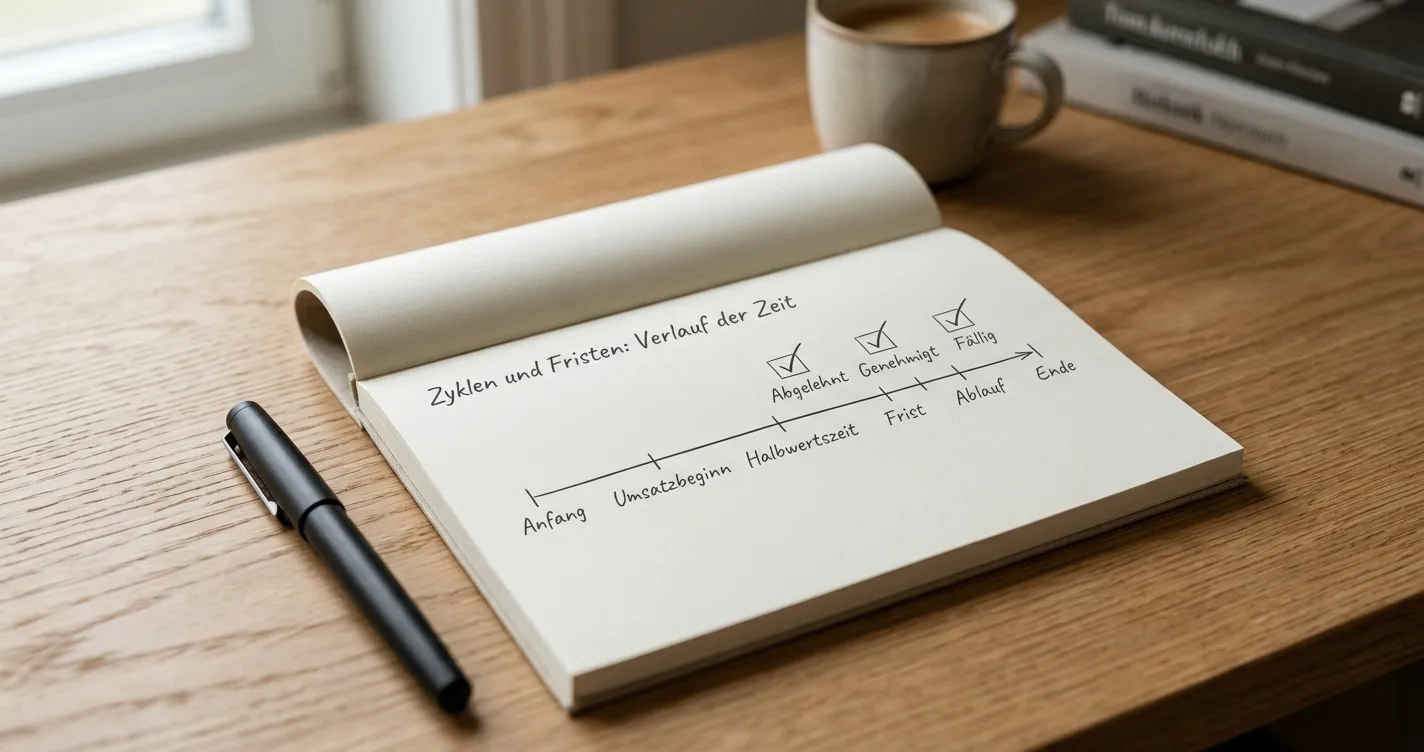 Zyklen und Fristen: Verlauf der Zeit
Abgelehnt Genehmigt Fällig
Anfang Umsatzbeginn Halbwertszeit Frist Ablauf Ende